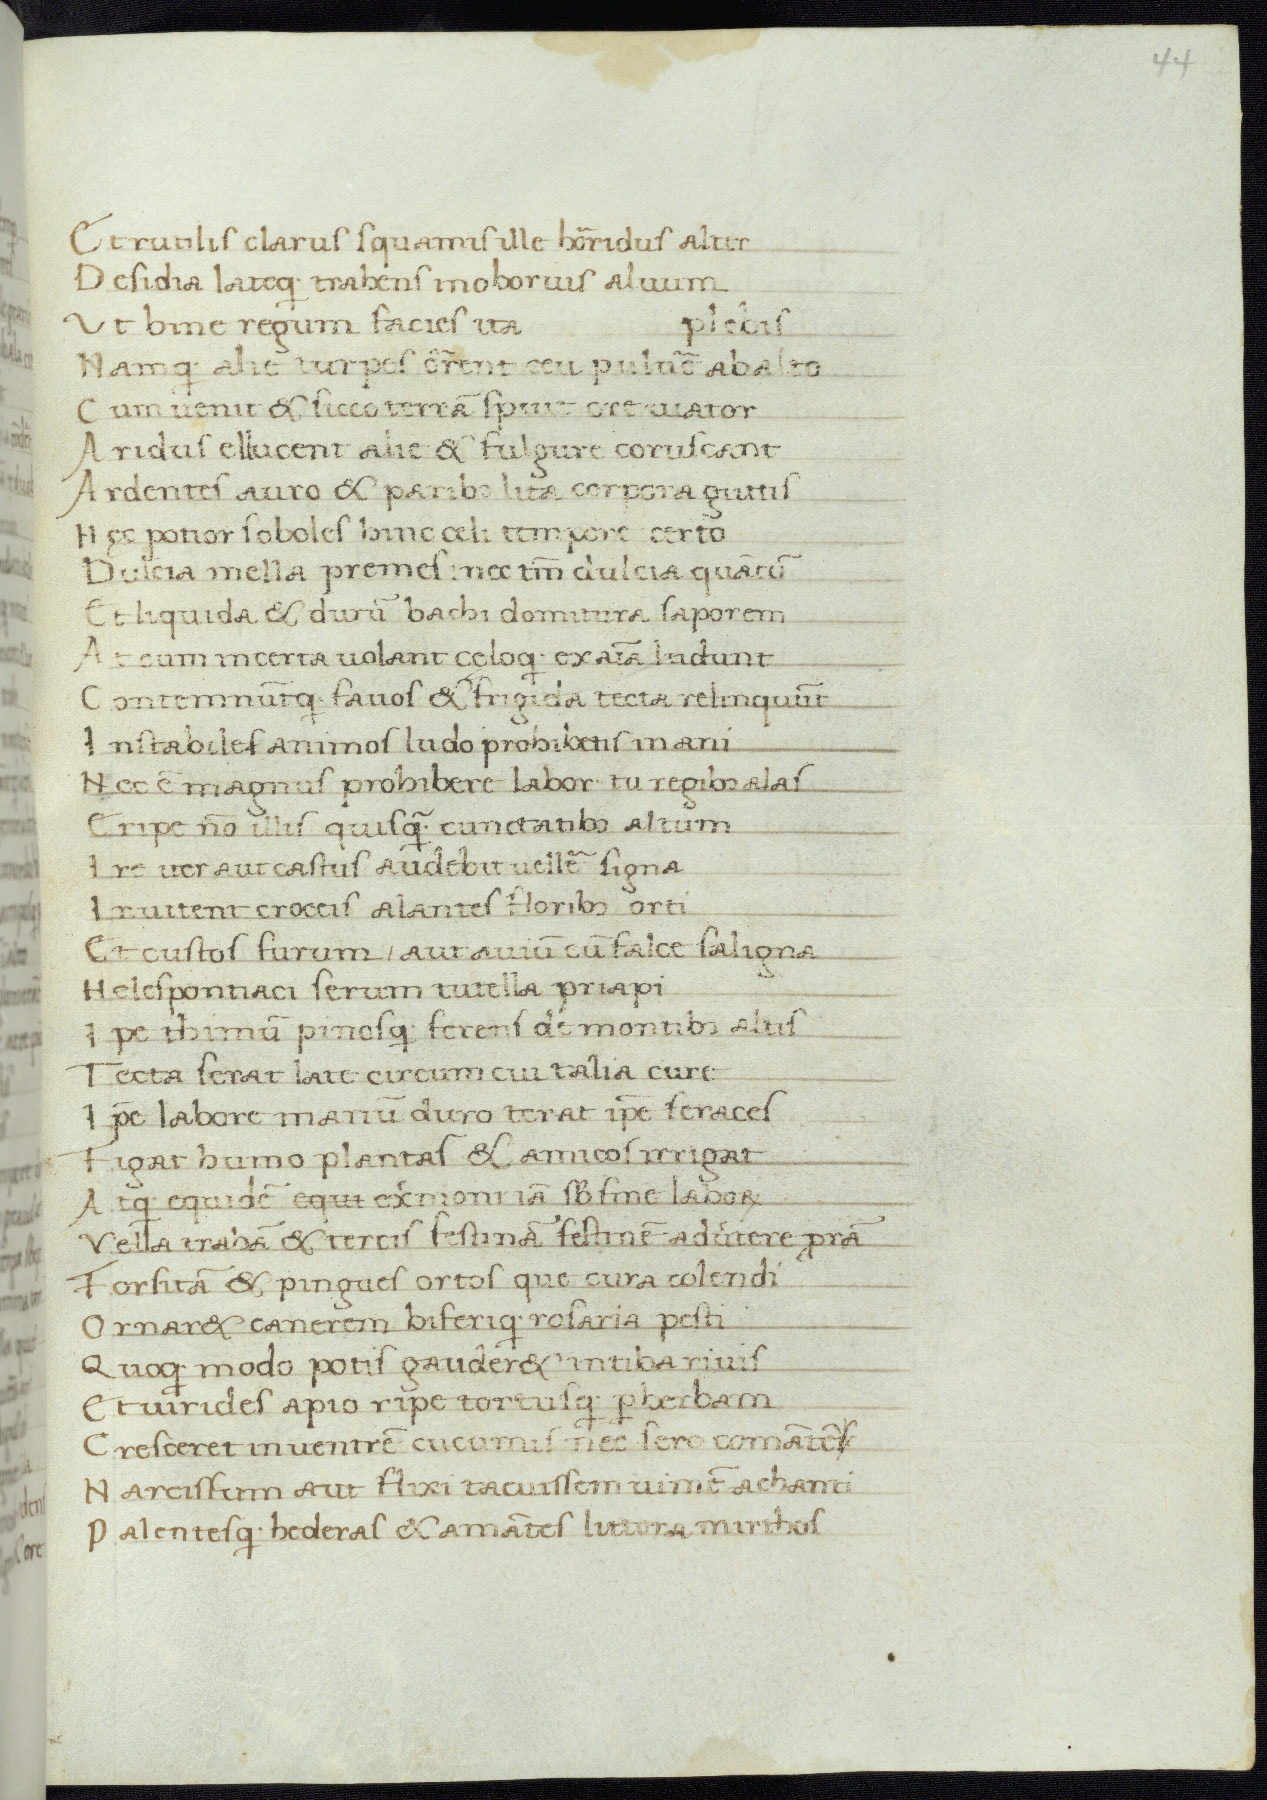 44
Et rutilis clarus squamis ille hōridus alter
Desidia lateq; trahens inoboruis aluum
Vt bine regum facies ita plebis
Namq; alie turpes orrent ceu puluē ab alto
Cum uenit & sicco terrā spuit ore uiator
Aridus ellucent alie & fulgure coruscant
Ardentes auro & paribꝰ lita corpora guttis
Hec potior soboles hinc celi tempore certo
Dulcia mella premes nec tm̄ dulcia quātū
Et liquida & durū bachi domitura saporem
At cum incerta uolant celoq; examīa ludunt
Contemnūtq; fauos & frigida tecta relinquūt
Instabiles animos ludo prohibebis inani
Nec ē magnus prohibere labor tu regibꝰ alas
Eripe nō illis quisq̄; cunctantibꝰ altum
Ire uer aut castus audebit uellē signa
Inuitent croceis alantes floribꝰ orti
Et custos furum / aut auiū cū falce saligna
Helespontiaci serum tutella priapi
Ipe thimū pinosq; ferens de montibꝰ altis
Tecta serat late circum cui talia cure
Ip̄e labore manū duro terat ip̄e feraces
Figat humo plantas & amicos irrigat
Atq; equidē equi exͭmoni iā sb̄ fine laboꝝ
Vella trahā & terris festinā festinē aduētere prā
Forsitā & pingues ortos que cura colendi
Ornar& canerem biferiq; rosaria pesti
Quoq; modo potis gauder& intiba riuis
Et uirides apio ripe tortusq; ꝑ herbam
Cresceret in uentrē cucumis nec sero comātē
Narcissum aut flixi tacuissem uimē achanti
Palentesq; hederas & amātes littora mirthos